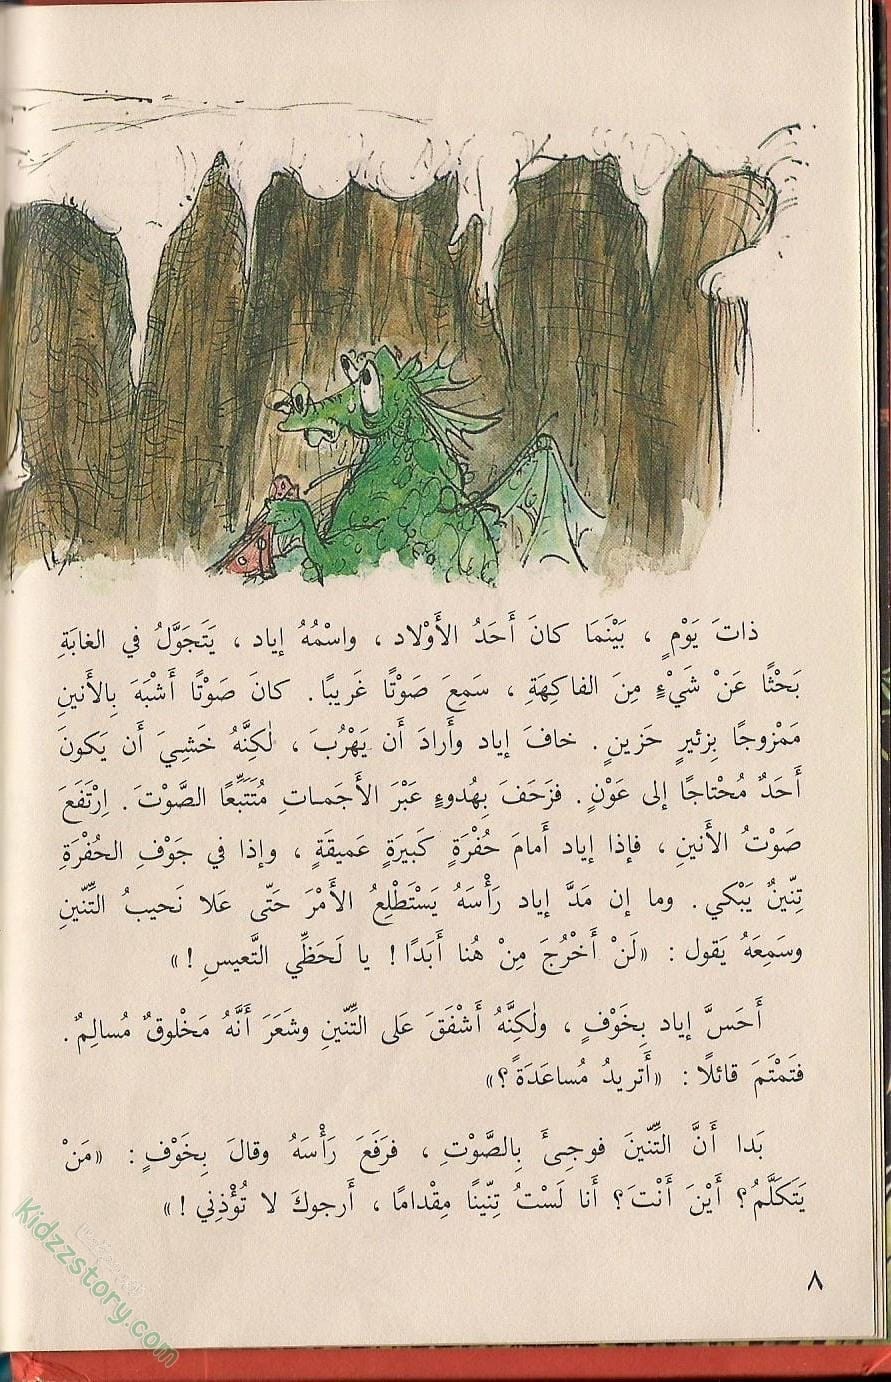 ذاتَ يَوْمٍ ، بَيْنَمَا كانَ أَحَدُ الأَوْلاد ، واسْمُهُ إياد ، يَتَجَوَّلُ في الغابَةِ
بَحْثًا عَنْ شَيْءٍ مِنَ الفاكِهَةِ ، سَمِعَ صَوْتًا غَريبًا . كانَ صَوْتًا أَشْبَهَ بِالأَنينِ
مَمْزوجًا بِزئيرٍ حَزينٍ . خافَ إياد وأَرادَ أَن يَهْرُبَ ، لٰكِنَّهُ خَشِيَ أَن يَكونَ
أَحَدٌ مُحْتاجًا إلى عَوْنٍ . فزَحَفَ بِهُدوءٍ عَبْرَ الأَجَماتِ مُتَتَبِّعًا الصَّوْتَ . اِرْتَفَعَ
صَوْتُ الأَنينِ ، فإذا إياد أَمامَ حُفْرَةٍ كَبيرَةٍ عَميقَةٍ ، وإذا في جَوْفِ الحُفْرَةِ
تِنّينٌ يَبْكي . وما إن مَدَّ إياد رَأْسَهُ يَسْتَطْلِعُ الأَمْرَ حَتّى عَلا نَحيبُ التِّنّينِ
وسَمِعَهُ يَقول : «لَنْ أَخْرُجَ مِنْ هُنا أَبَدًا ! يا لَحَظِّي التَّعيسِ !»
أَحَسَّ إياد بِخَوْفٍ ، ولٰكِنَّهُ أَشْفَقَ عَلى التِّنّينِ وشَعَرَ أَنَّهُ مَخْلوقٌ مُسالِمٌ .
فتَمْتَمَ قائلًا : «أَتريدُ مُساعَدَةً ؟»
بَدا أَنَّ التِّنّينَ فوجِئَ بِالصَّوْتِ ، فرَفَعَ رَأْسَهُ وقالَ بِخَوْفٍ : «مَنْ
يَتَكَلَّمُ ؟ أَيْنَ أَنْتَ ؟ أَنا لَسْتُ تِنّينًا مِقْدامًا ، أَرجوكَ لا تُؤْذِني !»
٨
Kidzzstory.com